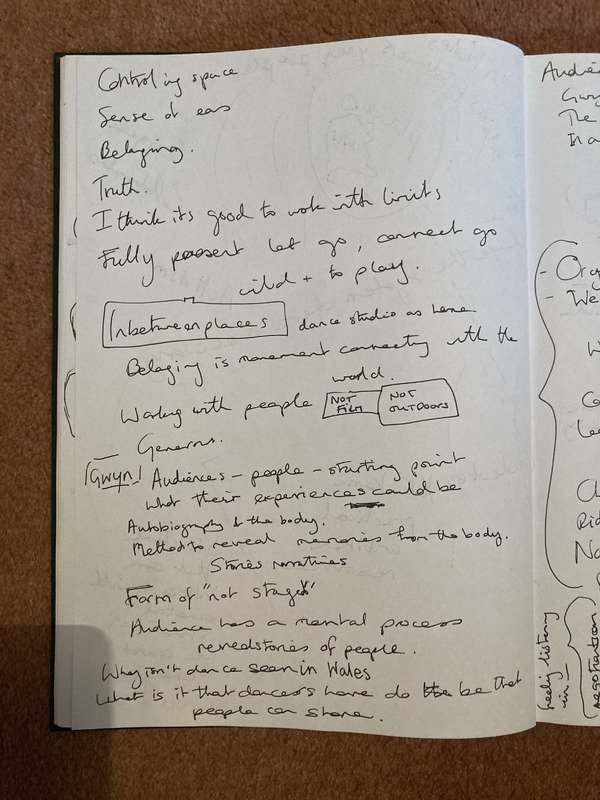 Controling space
Sense of eas
Belonging.
Truth.
I think its good to work with limits
Fully present let go, connect go
wild + to play.
Inbetween places dance studio as home.
Belonging is movement connecting with the
world.
Working with people NOT FILM NOT OUTDOORS
Generous.
Gwyn! Audiences - people - starting point
what their experiences could be
Autobiography & the body.
Method to reveal memories from the body.
Stories narratives
Form of "not staged"
Audience has a mental process
stories of people.
Why isn't dance seen in Wales
What is it that dancers have do be that
people can share.
Audie
Gwy
The
In a
- Or
- We
W
Co
Lea
Cl
Rid
No
feeling listening
in
negotiation